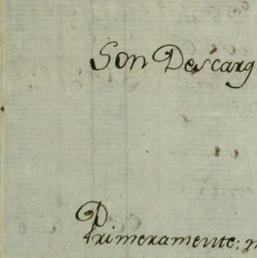 Son Descarg
Primeramente: m